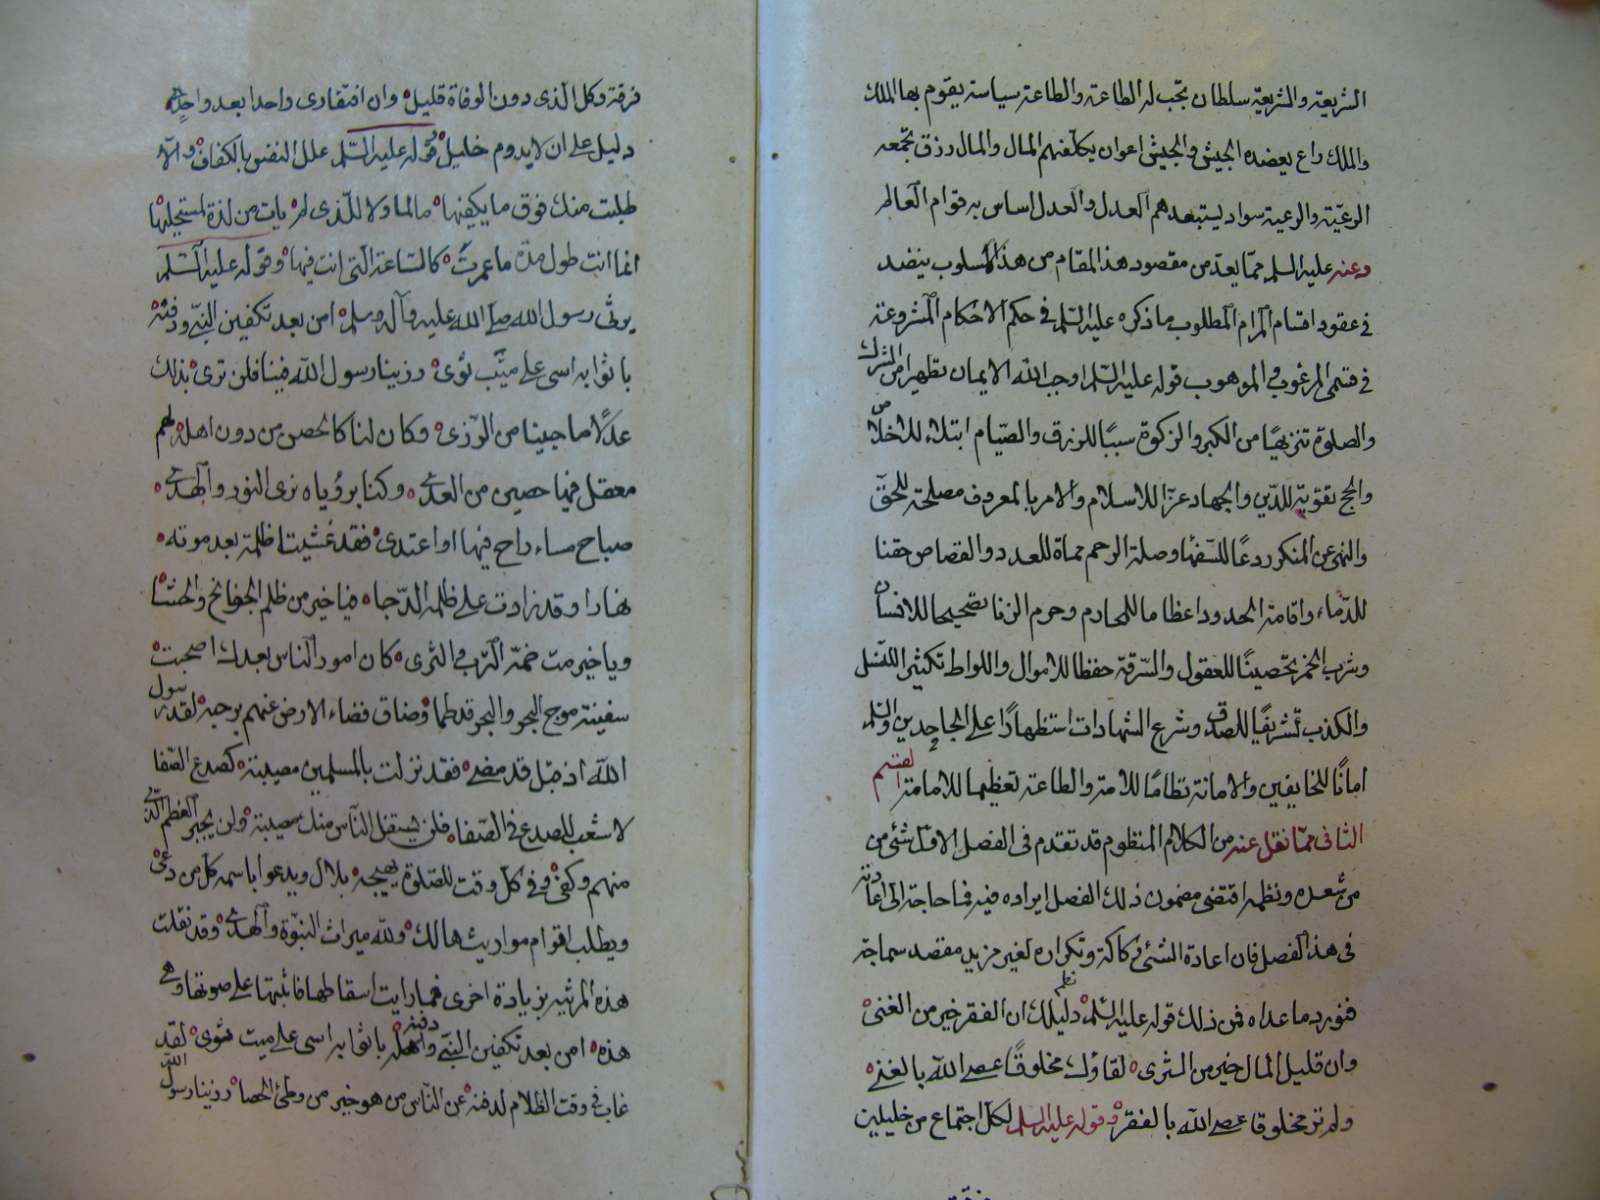 الشريعة والشريعة سلطان تجب له الطاعة والطاعة سياسة يقوم بها الملك
والملك راع يعضده الجيش والجيش اعوان يكلفهم المال والمال رزق تجمعه
الرعيّة والرعية سواد يستبعدهم العدل والعدل اساس به قوام العالم
وعنه عليه السلم ممّا يعدّ من مقصود هذا المقام من هذا الاسلوب ينضد
في عقود اقسام المرام المطلوب ما ذكره عليه السّلم في حكم الاحكام المشروعة
في قسمى المرغوب والموهوب قوله عليه السّلم اوجب الله الايمان تطهيرا من الشرك
والصلوة تنزيهًا من الكبر والزكوة سببًا للرزق والصّيام ابتلاء للاخلاص
والحج تقوية للدّين والجهاد عزّا للاسلام والامر بالمعروف مصلحة للحقّ
والنهى عن المنكر ردعًا للسّفها وصلة الرحم حماة للعدد والقصاص حقنا
للدّماء واقامة الحدود اعظاما للمحارم وحرم الزنا تصحيحا للانسان
وشرب الخمر تحصينًا للعقول والسّرقة حفظا للاموال واللواط تكثير اللنسل
والكذب تشريفًا للصدق وشرع الشهادات استظهارًا على الجاحدين والسّلم
امانًا للخايفين والامانة نظامًا للامة والطاعة تعظيما للامامة القسم
الثانى ممّا نقل عنه من الكلام المنظوم قد تقدم فى الفصل الاوّل شئ من
من شعره ونظمه اقتضى مضمون ذلك الفصل ايراده فيه فما حاجة الى اعادته
فى هذا الفصل فان اعادة الشئ ركاكة وتكراره لغير مزيد مقصد سماجة
فنورد ما عداه فمن ذلك قوله عليه السّلم نظم دليلك ان الفقر خير من الغنى
وان قليل المال خير من المثرى لقاؤك مخلوقًا عصى الله بالغنى
ولم تر مخلوقا عصى الله بالفقر وقوله عليه السلم لكلّ اجتماع من خليلين
فرقة
فرقة وكل الذى دون الوفاة قليل وان افتقارى واحدا بعد واحد
دليل على ان لا يدوم خليل وقوله عليه السّلم علل النفس بالكفاف والّا
طلبت منك فوق ما يكفيها ما لما ولا للّذى لم يات من لذة لمستحليها
انما انت طول مدة ما عمرت كالسّاعة التى انت فيها وقوله عليه السّلم
يرثى رسول الله صلى الله عليه وآله وسلم امن بعد تكفين النبى ودفنه
باثوابه اسى على ميّت ثوى ورزينا رسول الله فينا فلن نرى بذلك
عدلًا ما حيينا من الرّزى وكان لنا كالحصن من دون اهله لهم
معقل فيها حصين من العدى وكنا برؤياه نرى النور والهدى
صباح مساء راح فيها او اعتدى فقد غشيتنا ظلمة بعد موته
نهارا وقد زادت على ظلمة الدّجا فيا خير من ظلم الجوانح والحشا
ويا خير ميت ضمّه الترب والثرى كان امور الناس بعدك اصحبت
سفينة موج البحر والبحر قد طما وضاق فضاء الارض عنهم برحبه لقد رسول
الله اذ قيل قد مضى فقد نزلت بالمسلمين مصيبة كصدع الصّفا
لا شعب للصدع فى الصّفا فلن يستقل النّاس منك مصيبة ولن يجبر العظم الذى
منهم وكفى وفى كلّ وقت للصّلوة يهيجه بلال ويدعوا باسمه كل من دعى
ويطلب اقوام مواريث هالك ولله ميراث النبوّة والهدى وقد نقلت
هذه المرثيه بزيادة اخرى فما رايت اسقاطها فاثبتها على صورتها وهى
هذه امن بعد تكفين النبى ودفنه واهله باثوابه اسى على ميت ثوى لقد
غاب فى وقت الظلام لدفنه عن النّاس من هو خير من وطئ الحصا ورزينا رسول الله